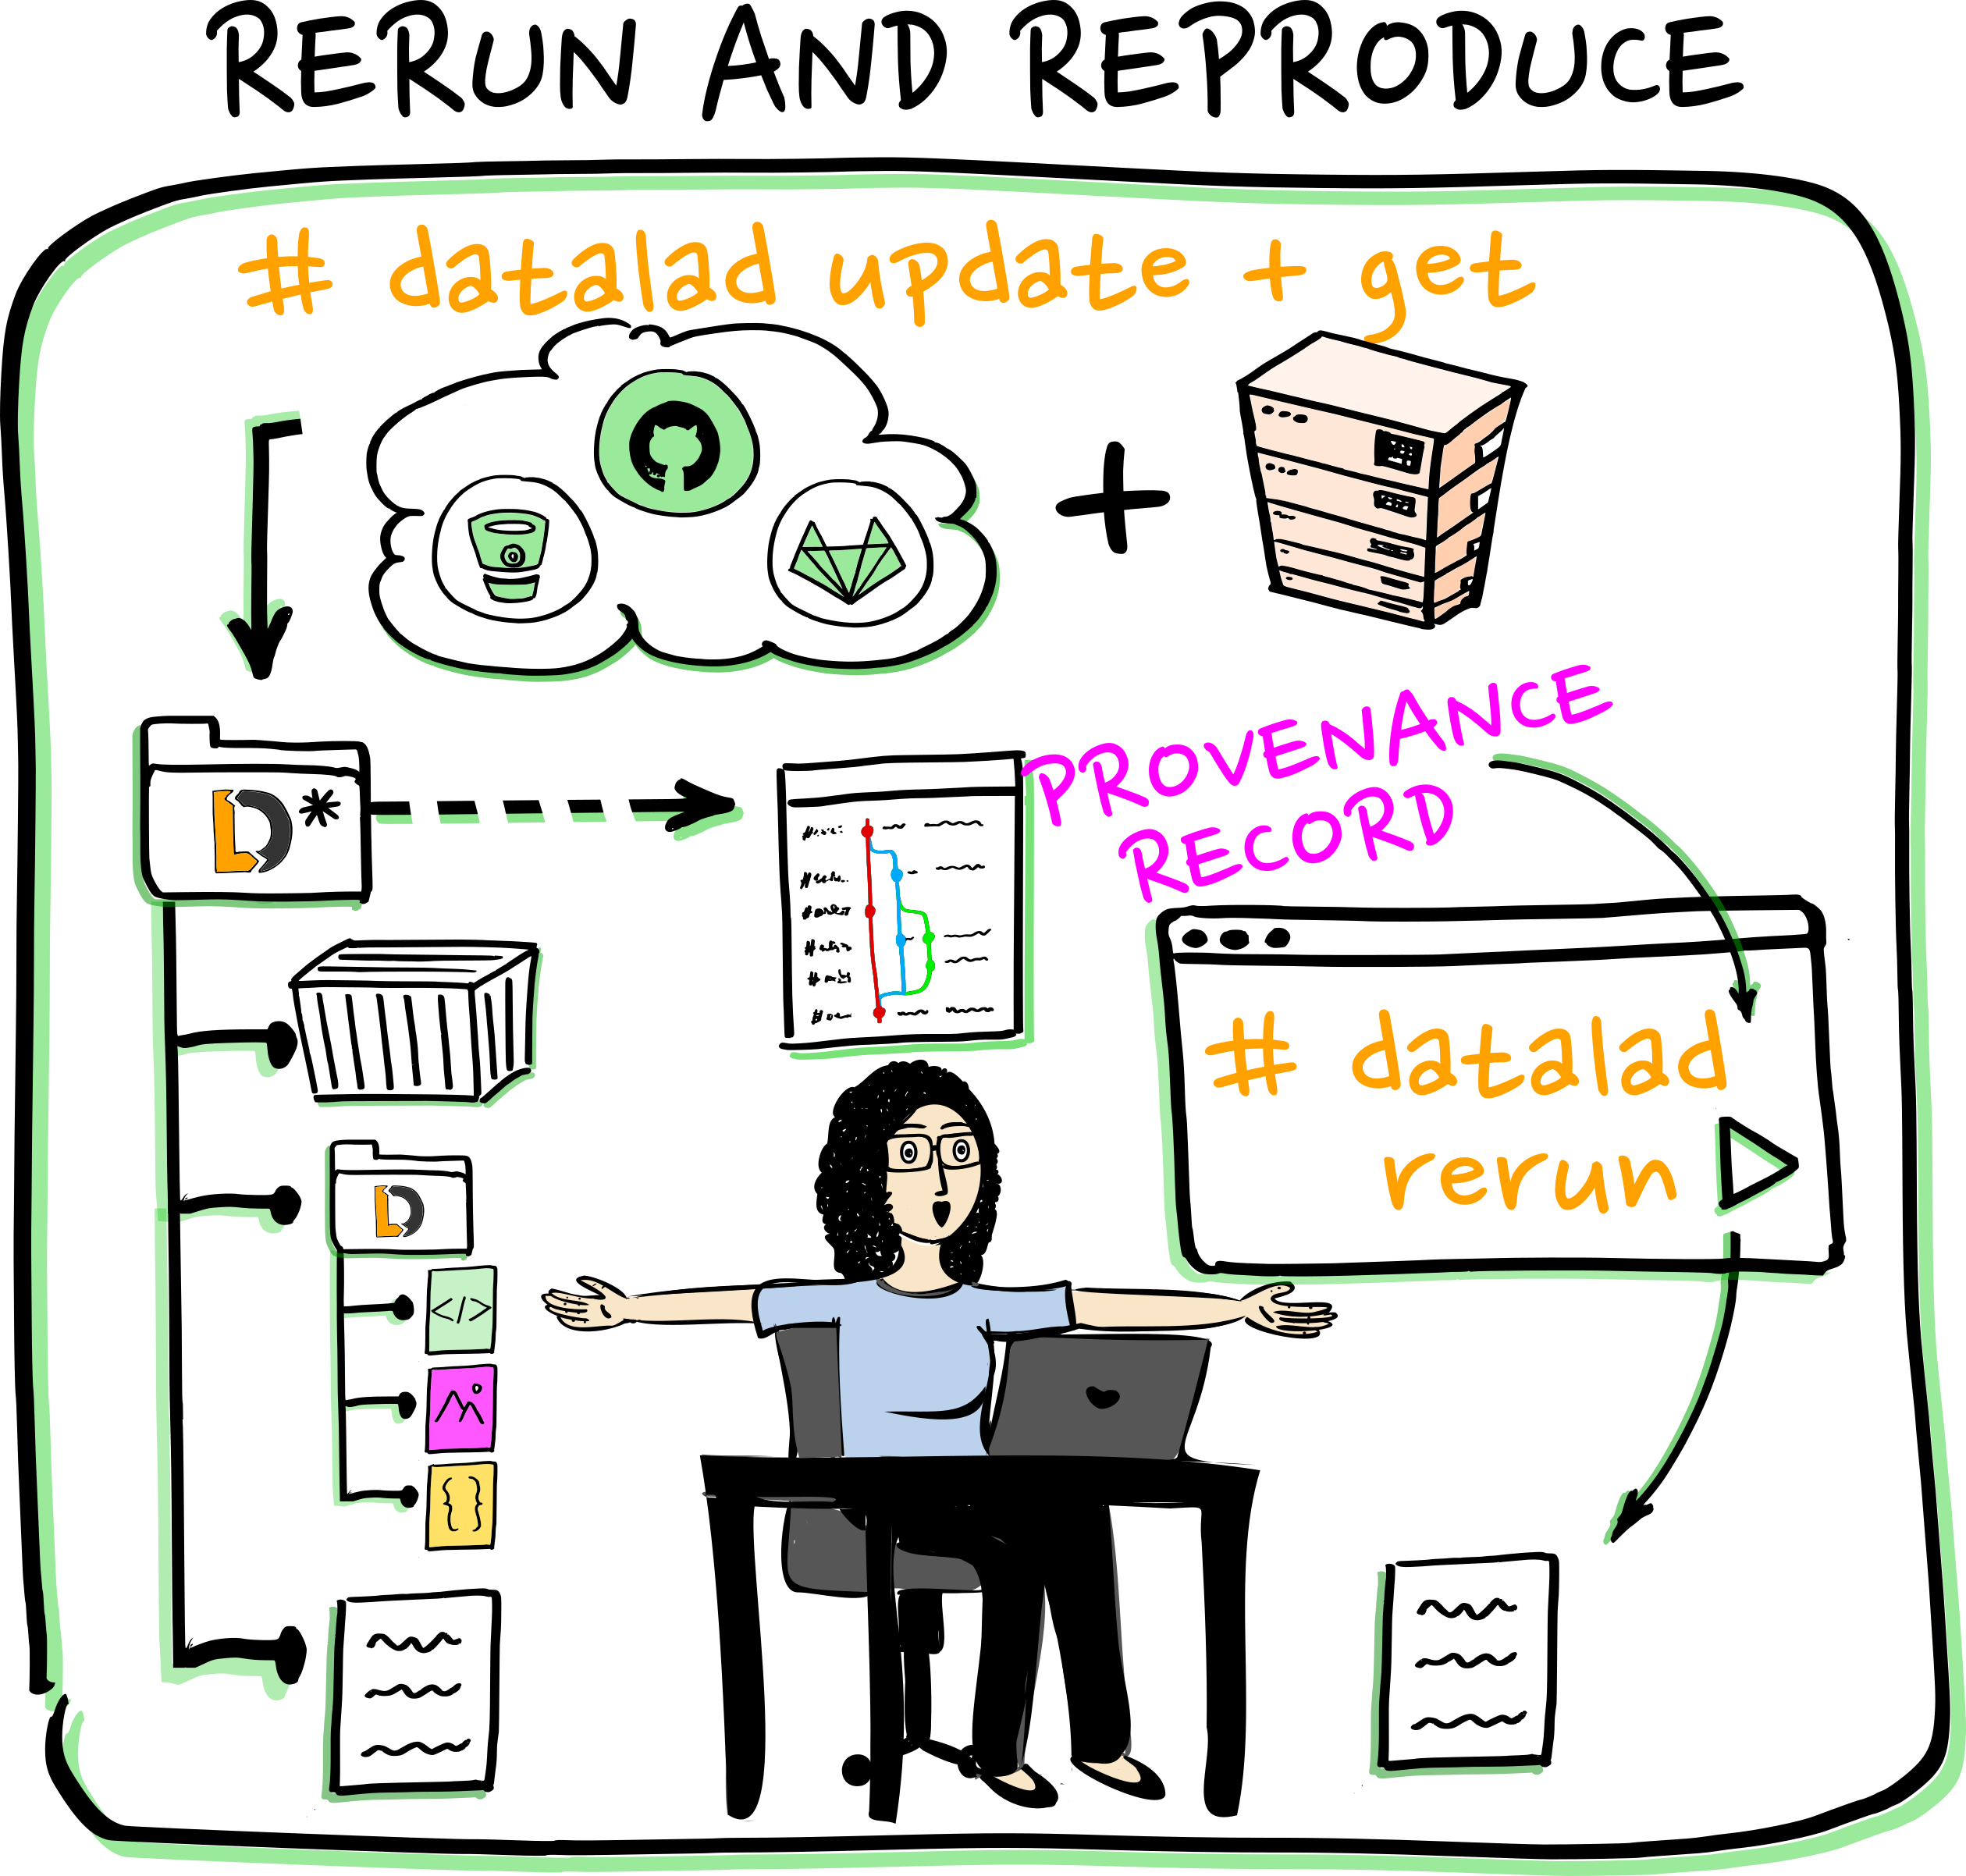 RERUN AND REPRODUCE
# datalad update + get
+
PROVENANCE
RECORD
# datalad
rerun